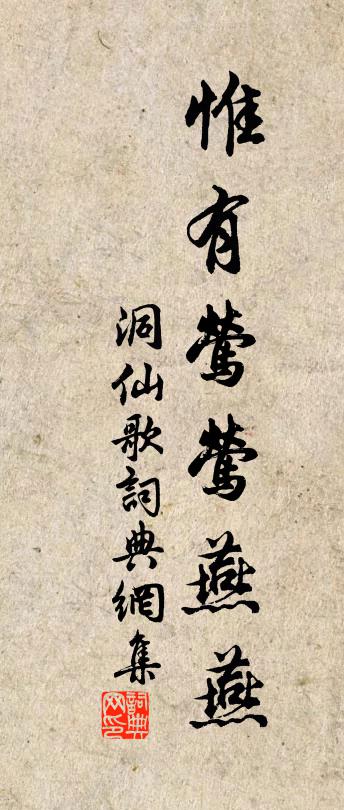 惟有鶯鶯燕燕
洞仙歌詞典網集
詞典网印